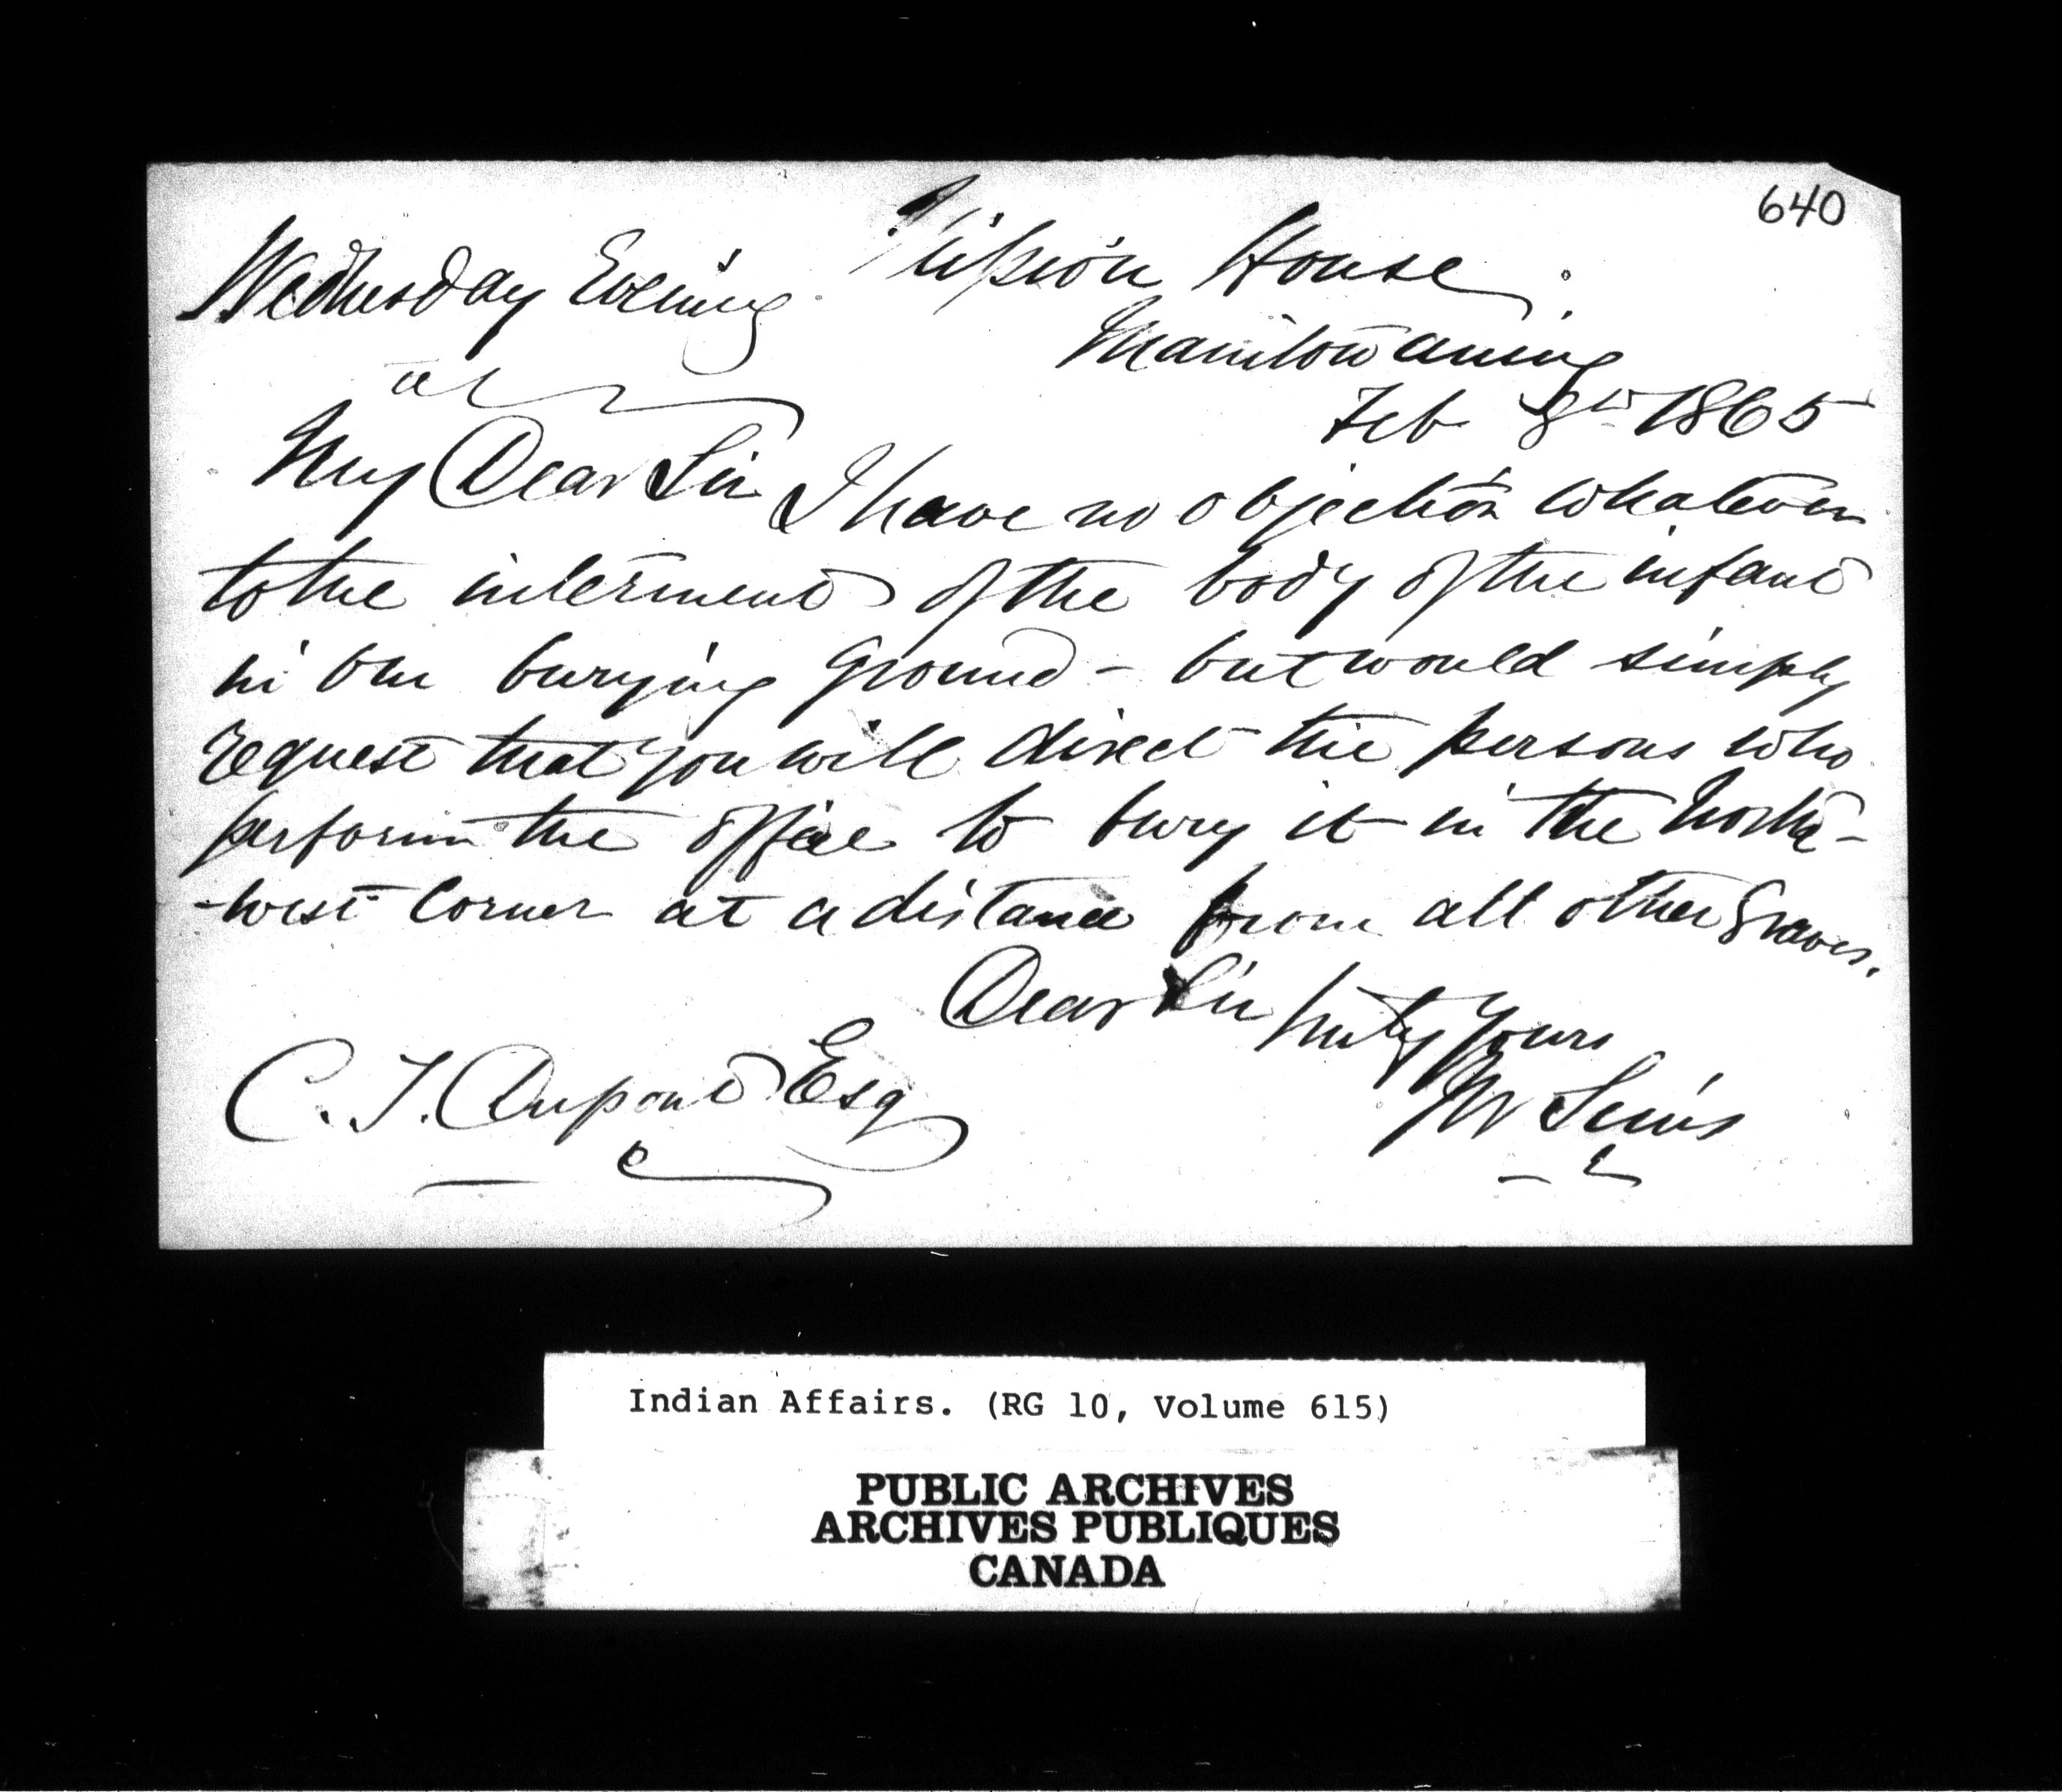 640
Wednesday Evening. Mission House.
Manitowaning
Feb 8th 1865
My Dear Sir I have no objection whatever
to the interment of the body of the infant
in our burying Ground - but would simply
request that you will direct the persons who
perform the office to bury it in the North-
-west Corner at a distance from all other Graves.
Dear Sir truly Yours
C. T. Dupont Esq
Indian Affairs. (RG 10, Volume 615)
PUBLIC ARCHIVES
ARCHIVES PUBLIQUES
CANADA